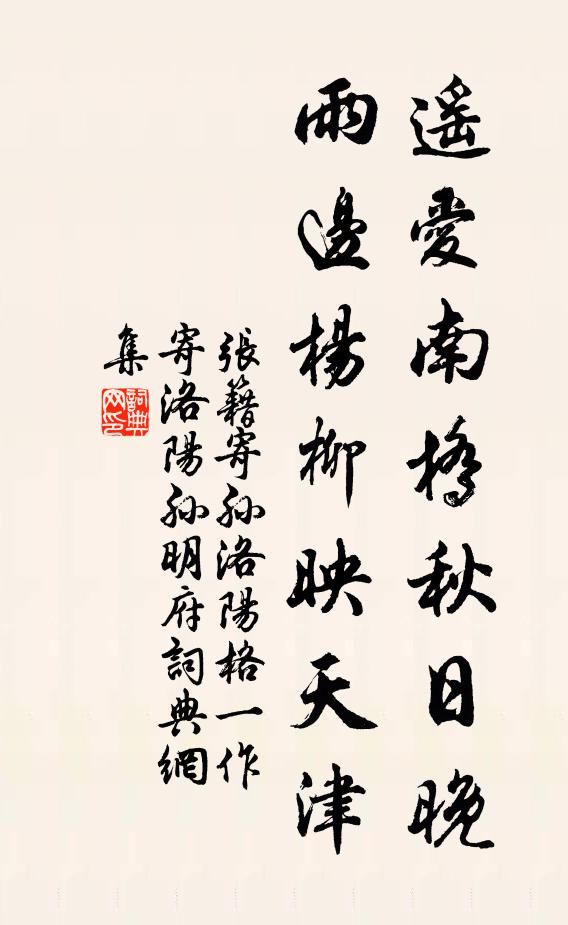 遥愛南橋秋日晚
雨邊楊柳映天津
張籍寄孙洛陽格一作
寄洛陽孙明府詞典網
集
詞典
网印